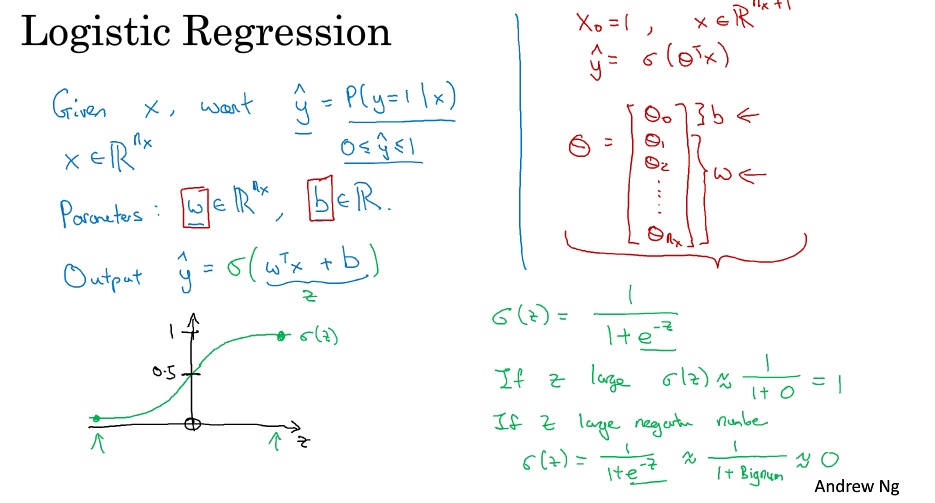 Logistic Regression
Given x, want ŷ = P(y=1|x)
x ∈ ℝ^{n_x}
0 ≤ ŷ ≤ 1
Parameters: w ∈ ℝ^{n_x}, b ∈ ℝ.
Output ŷ = σ(wᵀx + b)
z
1
σ(z)
0.5
z
x₀ = 1, x ∈ ℝ^{n_x+1}
ŷ = σ(θᵀx)
θ = [θ₀ } b ←
θ₁
θ₂ } w ←
⋮
θ_{n_x}]
σ(z) = 1 / (1 + e^{-z})
If z large σ(z) ≈ 1 / (1 + 0) = 1
If z large negative number
σ(z) = 1 / (1 + e^{-z}) ≈ 1 / (1 + Bignum) ≈ 0
Andrew Ng